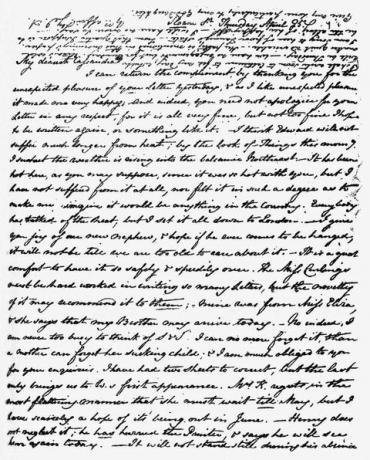 Sloane St. Thursday April 25
My dearest Cassandra
I can return the compliment by thanking you for the
unexpected pleasure of your Letter yesterday, & as I like unexpected pleasure,
it made me very happy; And indeed, you need not apologise for your
Letter in any respect, for it is all very fine, but not too fine I hope
to be written again, or something like it. I think Edward will not
suffer much longer from heat; by the look of Things this morng
I suspect the weather is rising into the balsamic Northeast. – It has been
hot here, as you may suppose, since it was so hot with you, but I
have not suffered from it at all, nor felt it in such a degree as to
make me imagine it would be anything in the Country. Everybody
has talked of the heat, but I set it all down to London. – I give
you joy of our new nephew, & hope if he ever comes to be hanged,
it will not be till we are too old to care about it. – It is a great
comfort to have it so safely & speedily over. The Miss Curlings
must be hard worked in writing so many Letters, but the novelty
of it may recommend it to them; – mine was from Miss Eliza,
& she says that my Brother may arrive today. – No indeed, I
am never too busy to think of S&S. I can no more forget it, than
a mother can forget her sucking child; & I am much obliged to you
for your enquiries. I have had two sheets to correct, but the last
only brings us to W.s first appearance. Mrs K. regrets in the
most flattering manner that she must wait till May, but I
have scarcely a hope of its being out in June. – Henry does
not neglect it; he has hurried the Printer, & says he will see
him again today. – It will not stand still during his absence